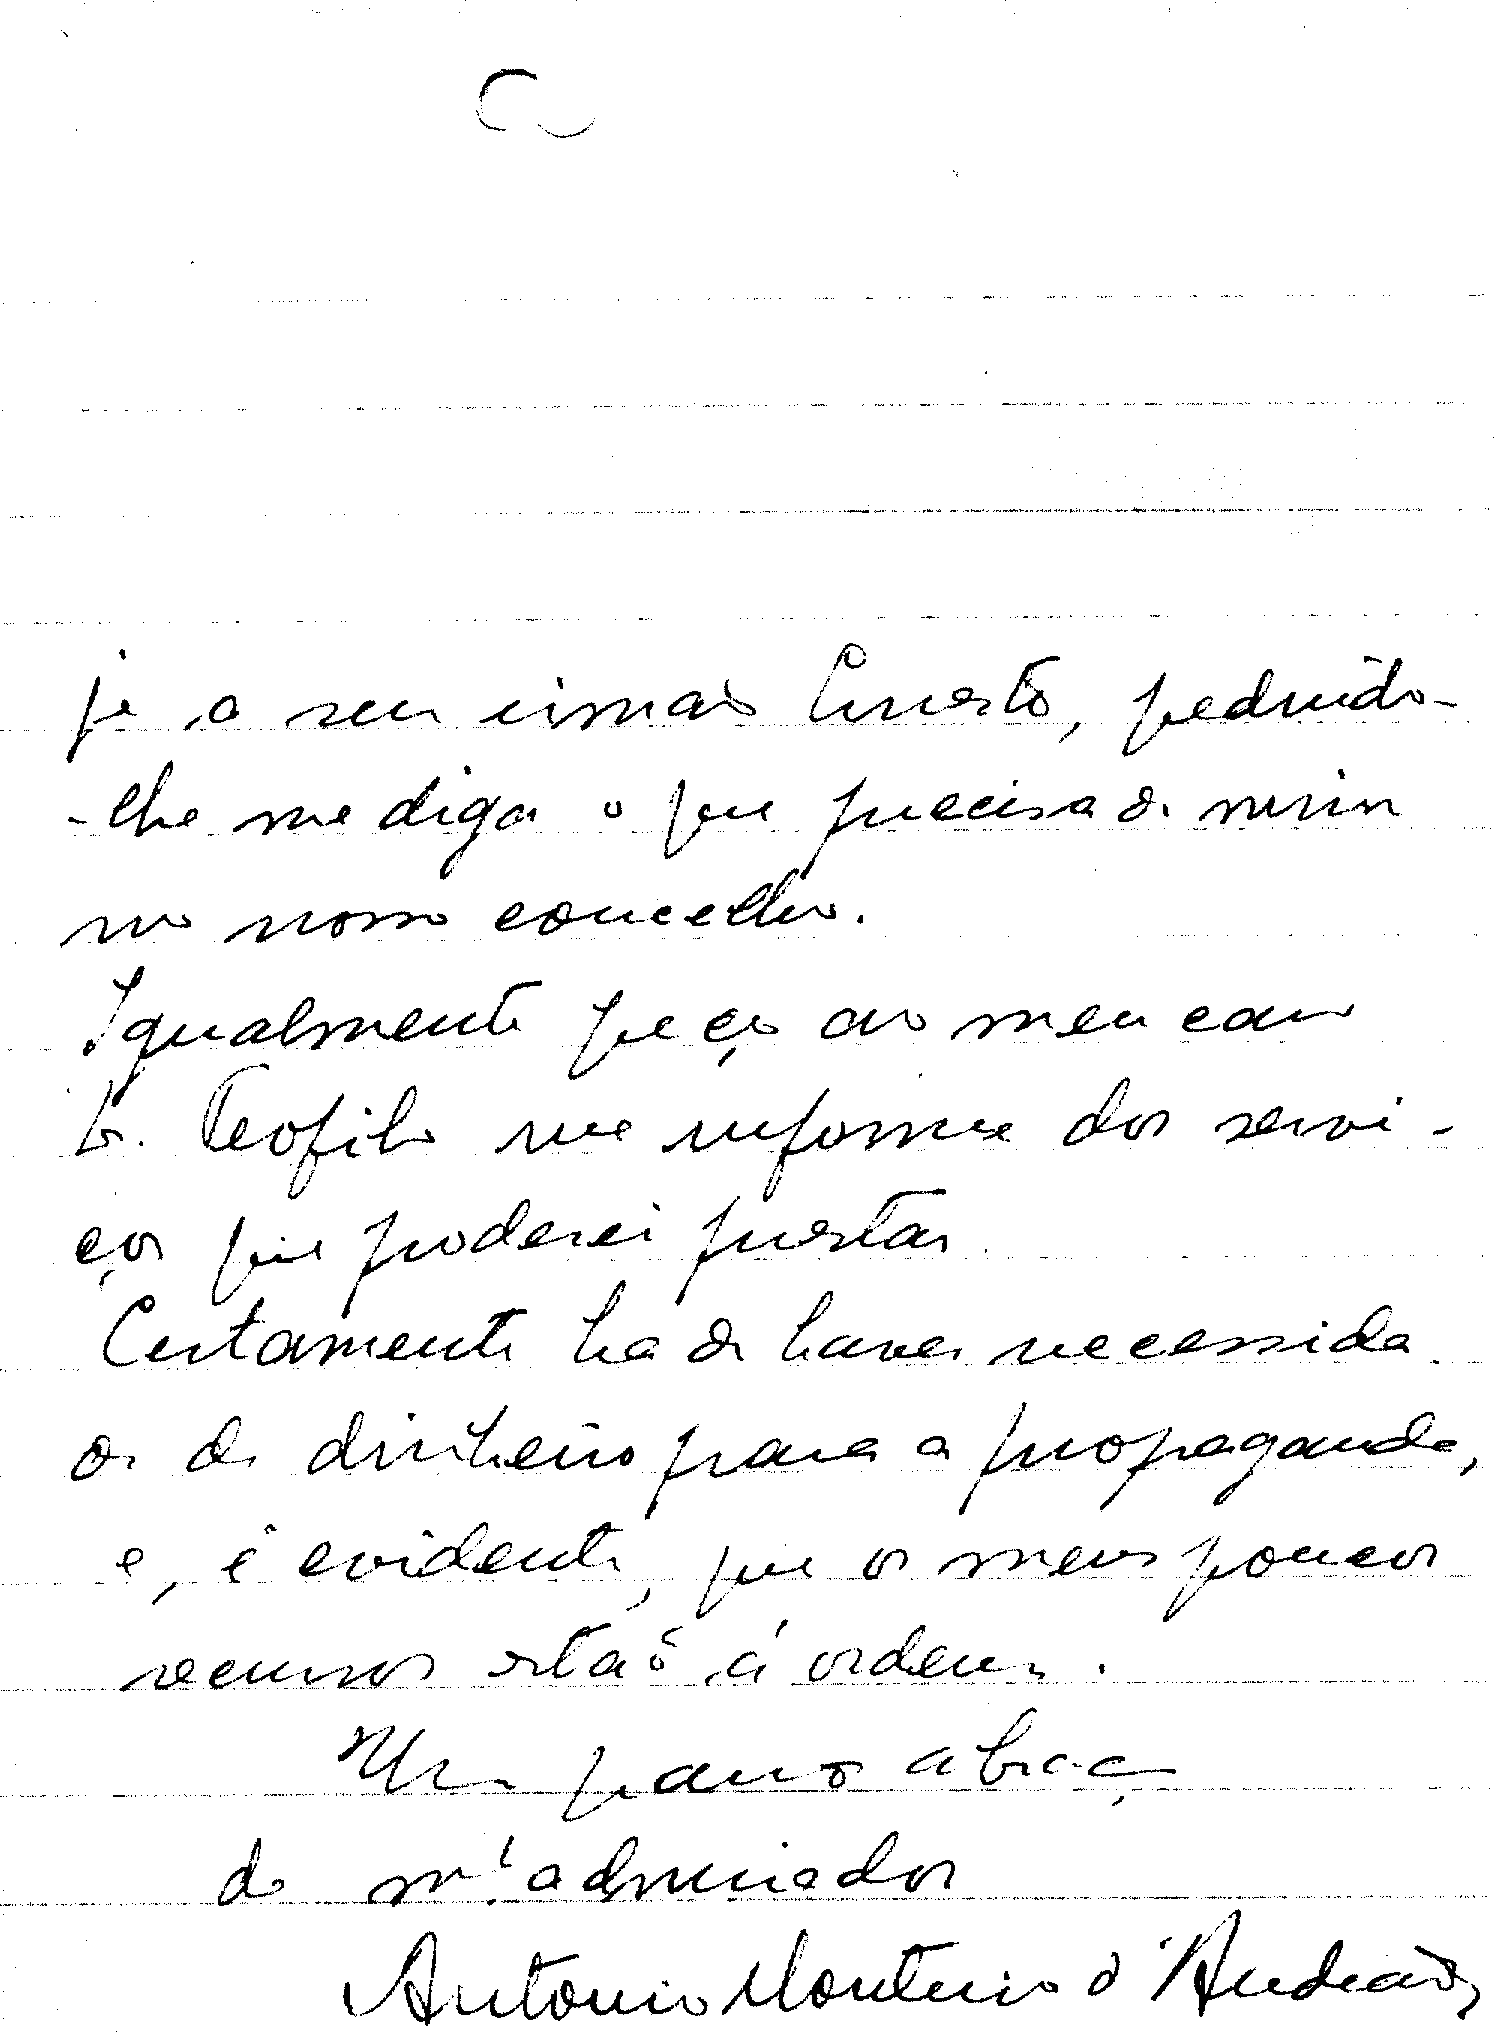 je a seu irmão Ernesto, pedindo-
-lhe me diga o que precisa de mim
no nosso concelho.
Igualmente peço ao meu caro
Dr. Teofilo me informe dos servi-
ços que poderei prestar.
Certamente ha de haver necessida
de de dinheiro para a propaganda,
e, é evidente, que os meus poucos
recursos estão á ordem.
Um grande abraço
do mt. admirador
Antonio Monteiro d'Andrade